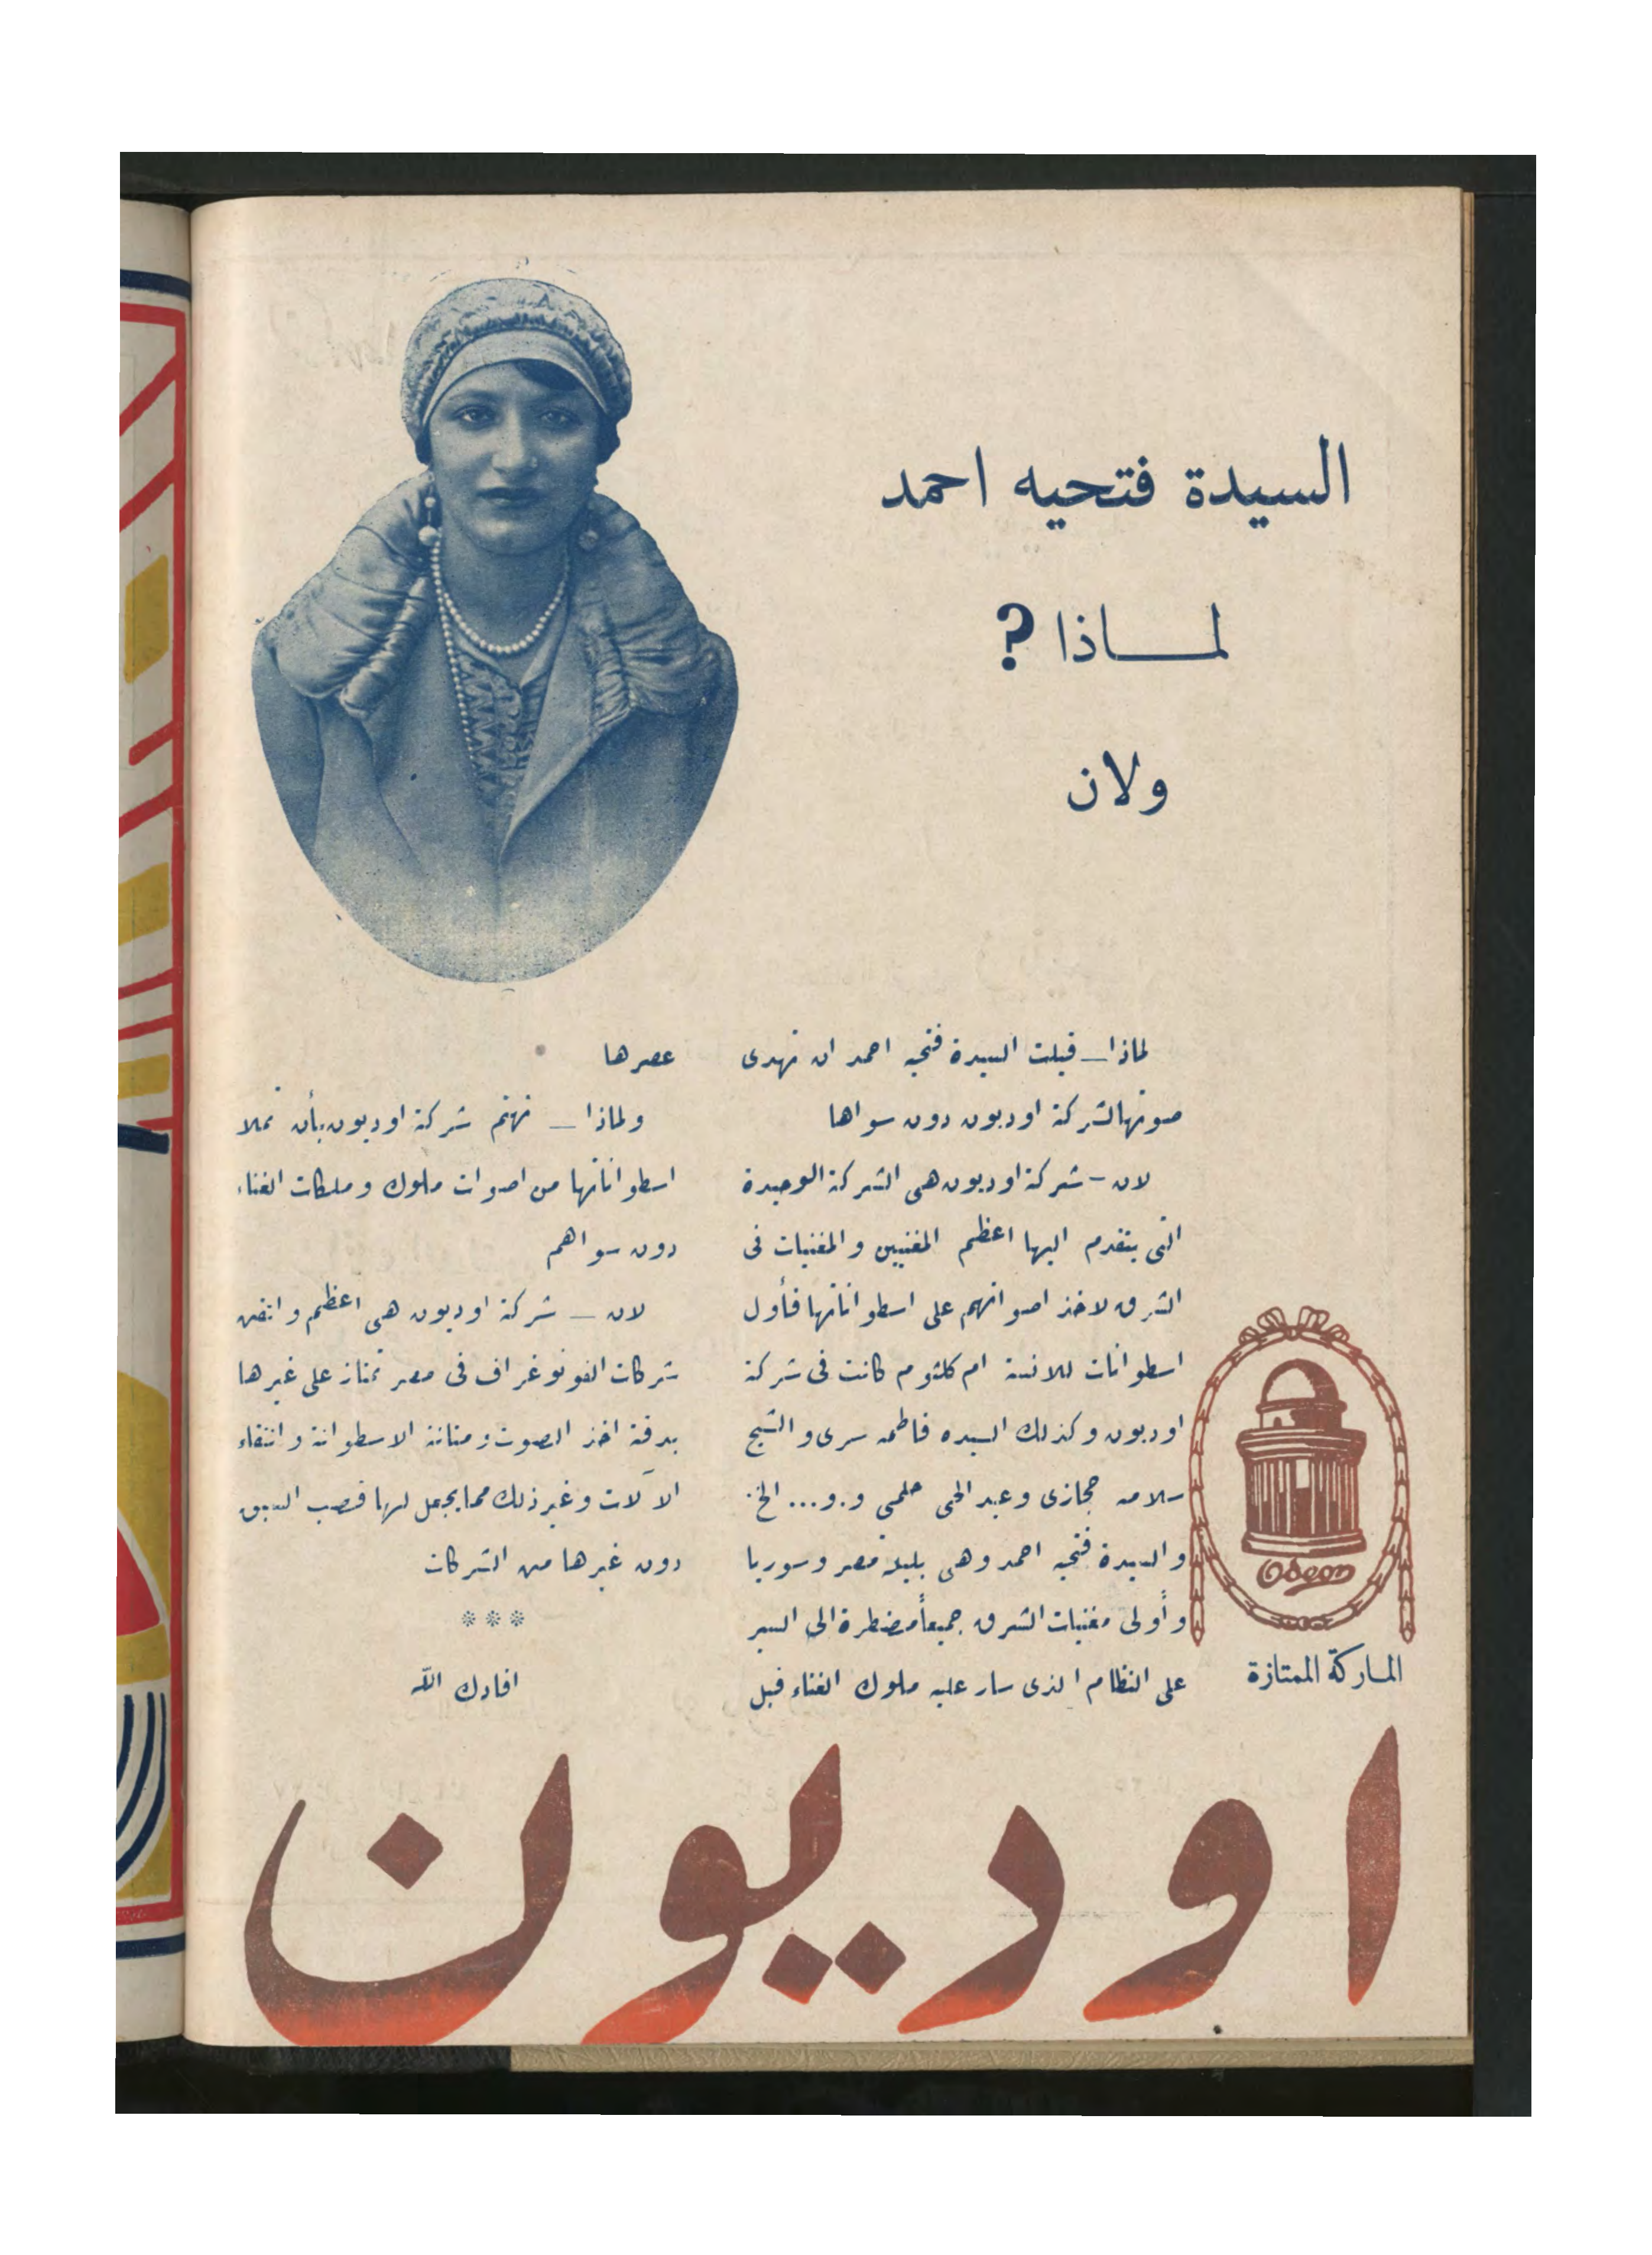 السيدة فتحيه احمد
لمـــاذا ?
ولان
لماذا — قبلت السيدة فتحيه احمد ان تهدى
صوتها لشركة اوديون دون سواها
لان - شركة اوديون هى الشركة الوحيدة
التى يتقدم اليها اعظم المغنيين والمغنيات فى
الشرق لاخذ اصواتهم على اسطواناتها فأول
اسطوانات للانسة ام كلثوم كانت فى شركة
اوديون وكذلك السيده فاطمه سرى والشيخ
سلامه حجازى وعبد الحى حلمى و.و... الخ.
والسيدة فتحيه احمد وهى بلبلة مصر وسوريا
وأولى مغنيات الشرق جميعاً مضطرة الى السير
على النظام الذى سار عليه ملوك الغناء قبل
عصرها
ولماذا — تهتم شركة اوديون بأن تملا
اسطواناتها من اصوات ملوك وملكات الغناء
دون سواهم
لان — شركة اوديون هى اعظم واتقن
شركات الفونوغراف فى مصر تمتاز على غيرها
بدقة اخذ الصوت ومتانة الاسطوانة وانتقاء
الآلات وغير ذلك مما يجعل لها قصب السبق
دون غيرها من الشركات
***
افادك الله
Odeon
الماركة الممتازة
اوديون